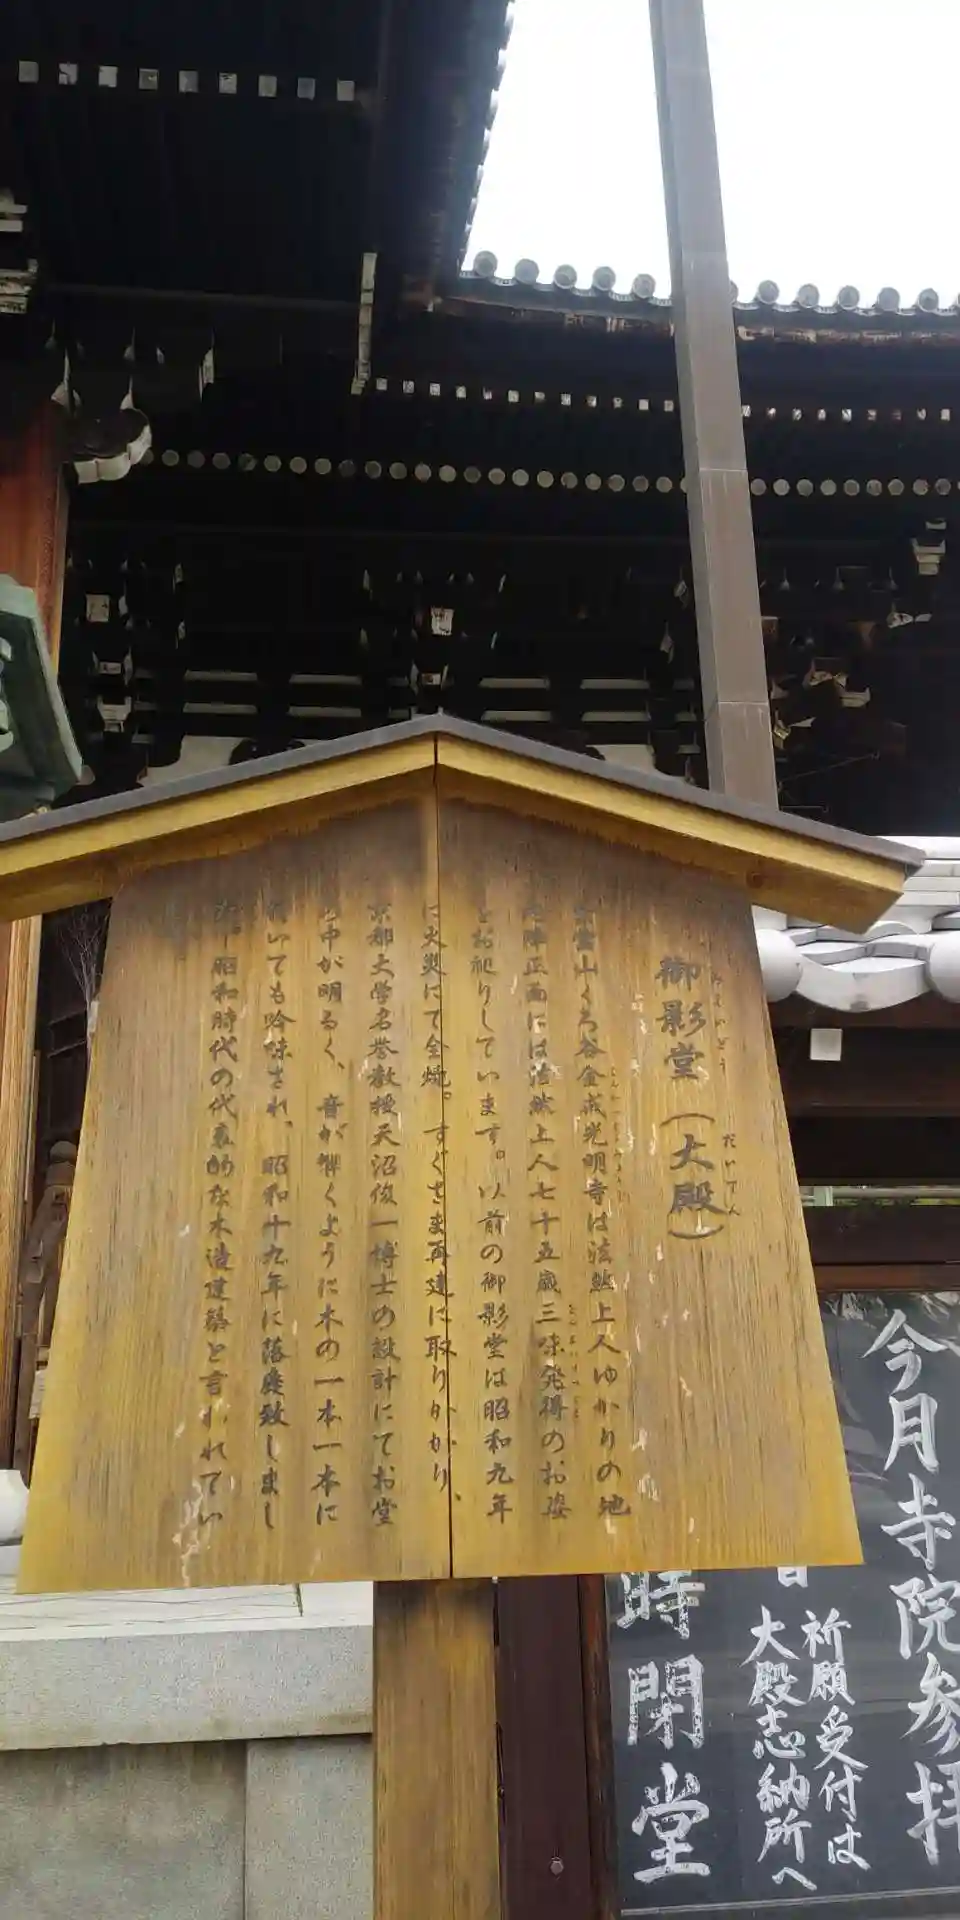 御影堂（大殿）
みえいどう
だいでん
雲山くろ谷金戒光明寺は法然上人ゆかりの地
内陣正面には法然上人七十五歳三味発得のお姿
をお祀りしています。以前の御影堂は昭和九年
に火災にて全焼。すぐさま再建に取りかかり、
京都大学名誉教授天沼俊一博士の設計にてお堂
の中が明るく、音が響くように木の一本一本に
於いても吟味され、昭和十九年に落慶致しまし
た。昭和時代の代表的な木造建築と言われてい
今月寺院参拝
祈願受付は
大殿志納所へ
時閉堂